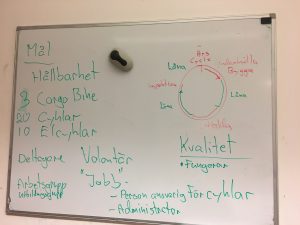 Mål
Hållbarhet
3 Cargo Bike
20 Cyklar
10 Elcyklar
Deltagare Volontär
Arbetsgrupp "Jobb"
- Person ansvarig för cyklar
- Administrator
Bas
Cycle
Låna
Låna
Låna
Kvalitet
• Fungerar